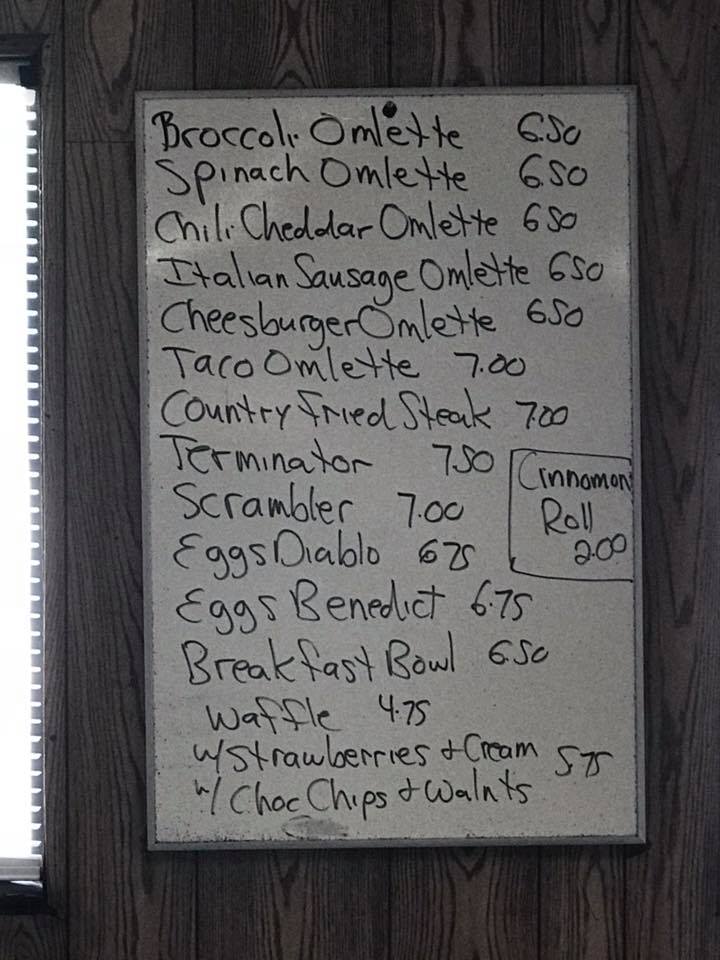 Broccoli Omlette 6.50
Spinach Omlette 6.50
Chili Cheddar Omlette 6 50
Italian Sausage Omlette 6 50
Cheesburger Omlette 6 50
Taco Omlette 7.00
Country Fried Steak 7.00
Terminator 7.50
Scrambler 7.00
Eggs Diablo 6 75
Eggs Benedict 6.75
Breakfast Bowl 6.50
Waffle 4.75
w/ Strawberries + Cream 5 75
w/ Choc Chips + Walnts
Cinnomon
Roll
2.00